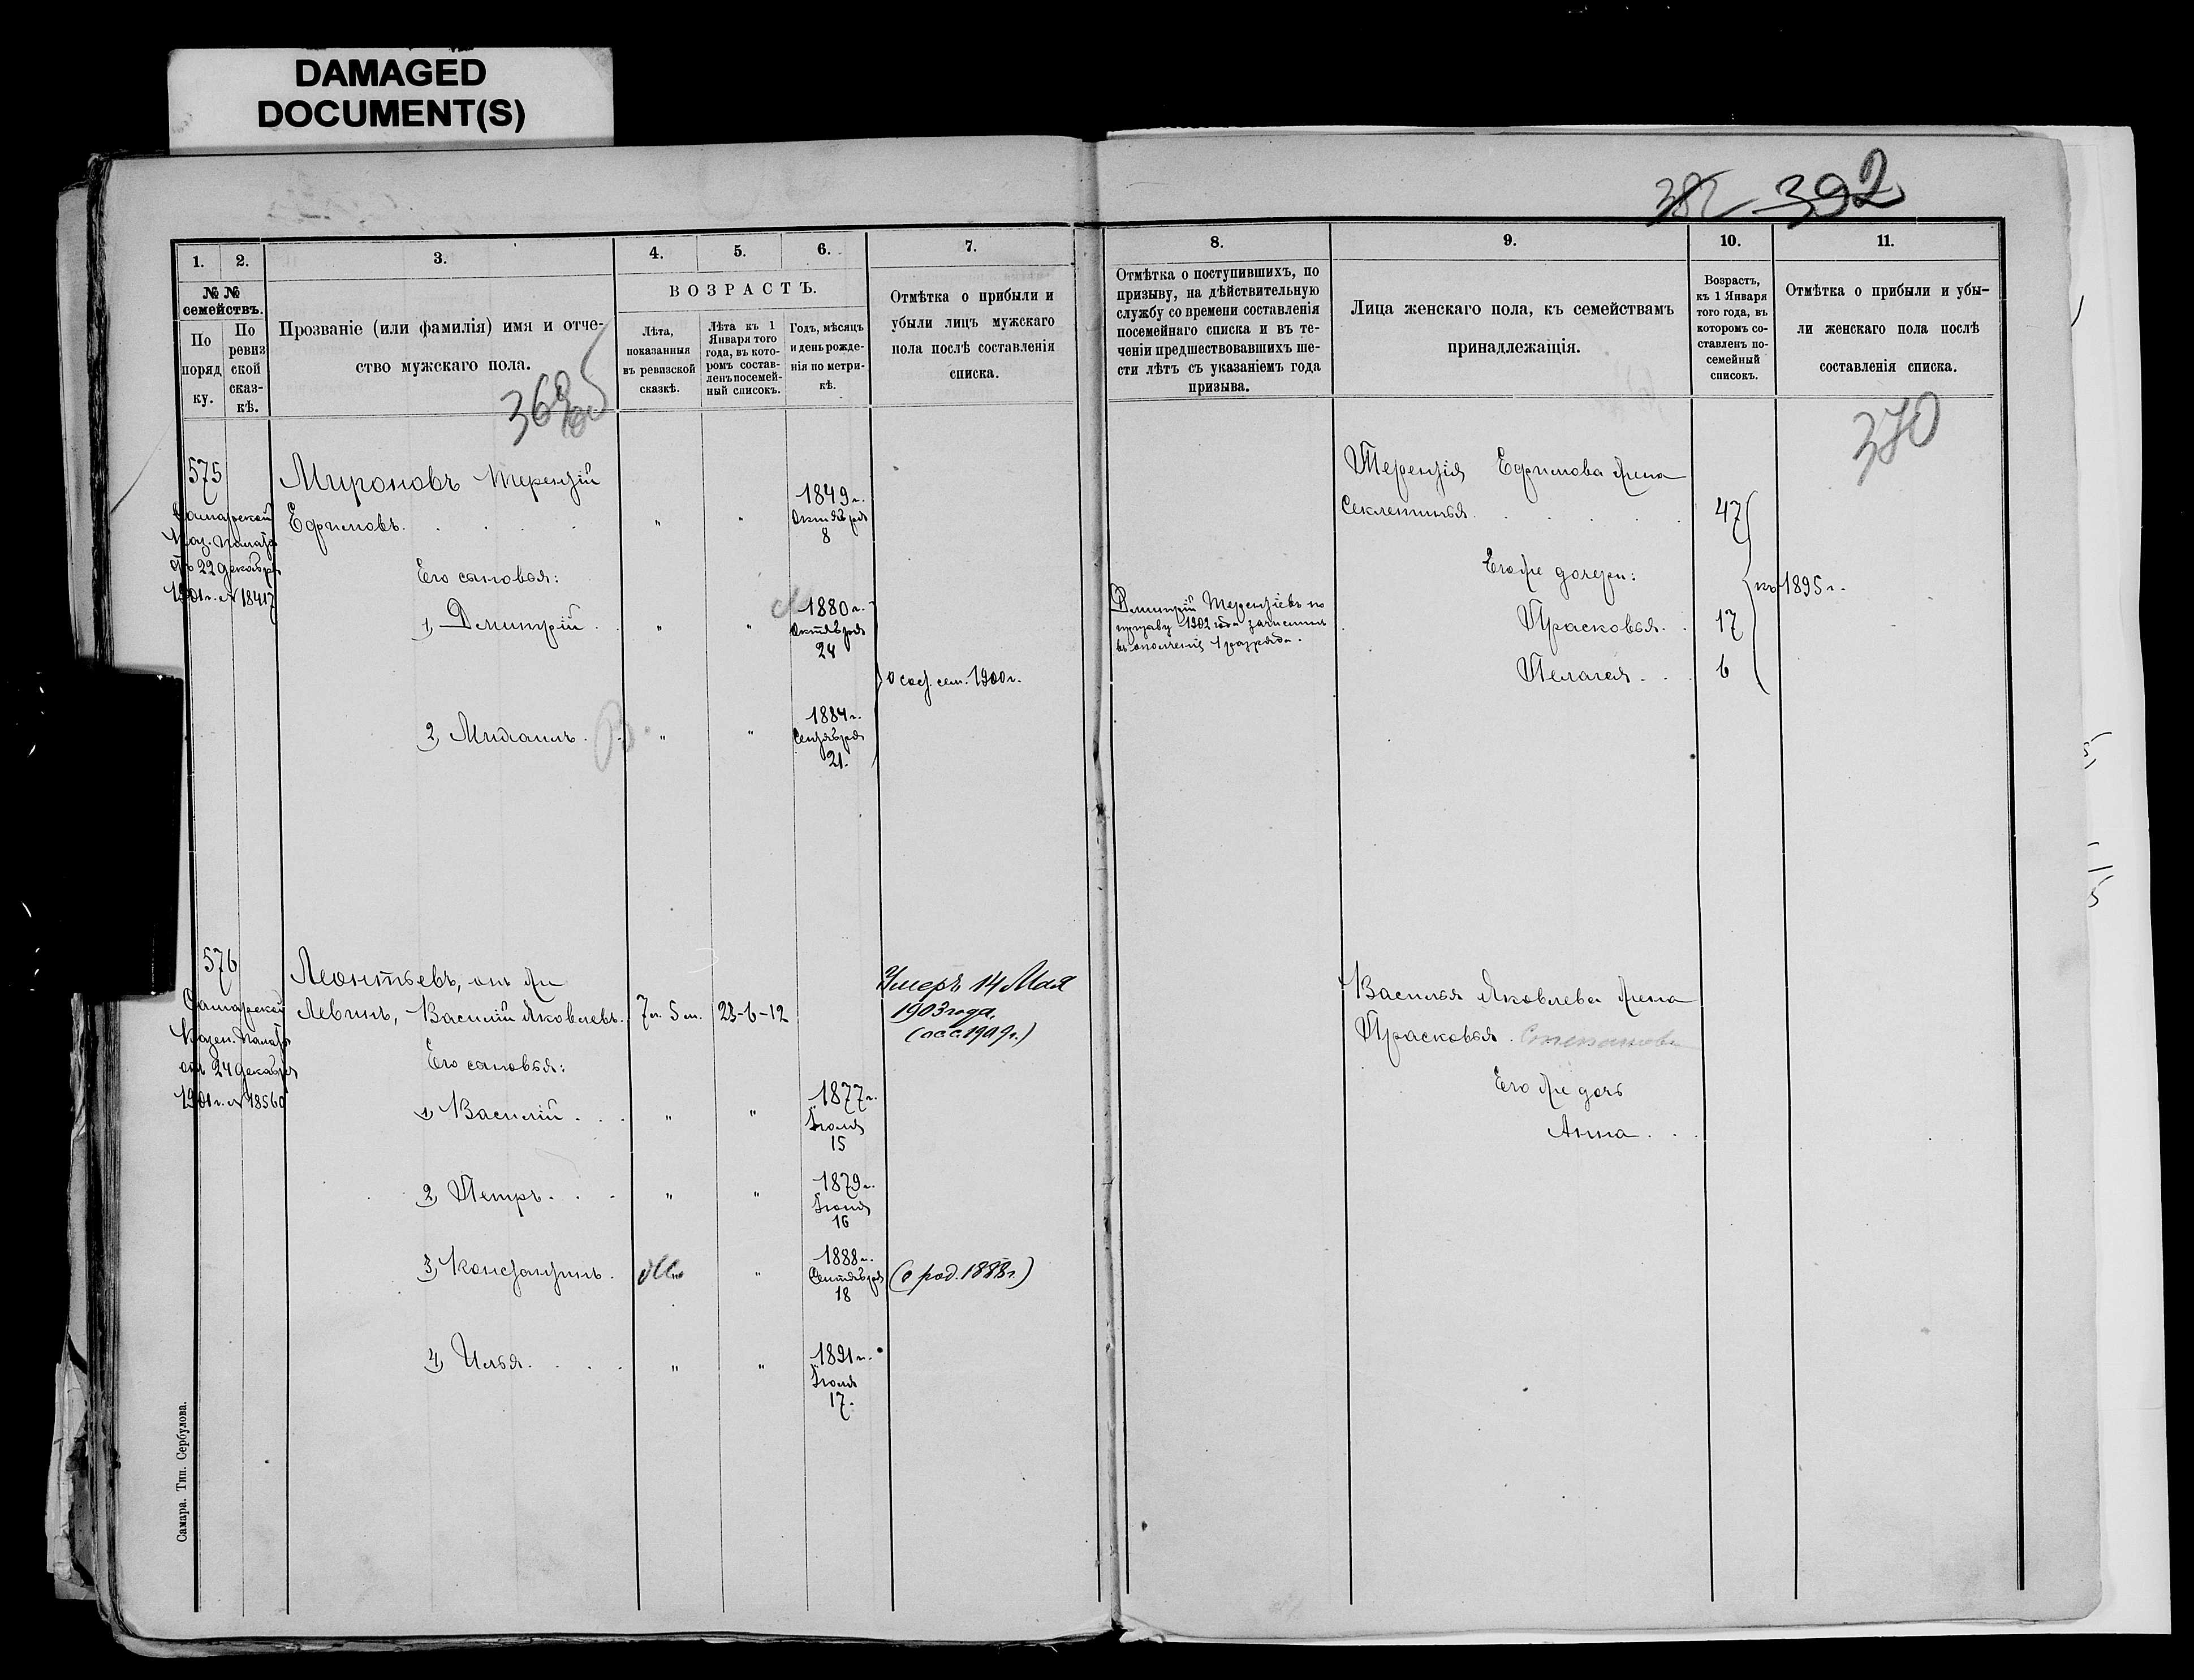 DAMAGED
DOCUMENT(S)
392
1.
2.
3.
4.
5.
6.
7.
№ №
семействъ.
По
поряд
ку.
По
ревиз
ской
сказ-
кѣ.
Прозваніе (или фамилія) имя и отче-
ство мужскаго пола.
ВОЗРАСТЪ.
Лѣта,
показанныя
въ ревизской
сказкѣ.
Лѣта къ 1
Января того
года, въ кото-
ромъ состав-
ленъ посемей-
ный списокъ.
Годъ, мѣсяцъ
и день рожде-
нія по метри-
кѣ.
Отмѣтка о прибыли и
убыли лицъ мужскаго
пола послѣ составленія
списка.
8.
9.
10.
11.
Отмѣтка о поступившихъ, по
призыву, на дѣйствительную
службу со времени составленія
посемейнаго списка и въ те-
ченіи предшествовавшихъ ше-
сти лѣтъ съ указаніемъ года
призыва.
Лица женскаго пола, къ семействамъ
принадлежащія.
Возрастъ,
къ 1 Января
того года, въ
которомъ со-
ставленъ по-
семейный
списокъ.
Отмѣтка о прибыли и убы-
ли женскаго пола послѣ
составленія списка.
370
575
Самарской
Каз. Палаты
отъ 22 декабря
1901 г. № 18417
Мироновъ Терентій
Ефимовъ.
1849 г.
Октября
8
Его сыновья:
1, Дмитрій
1880 г.
Октября
24
О сос. сем. 1900 г.
2, Михаилъ
1884 г.
Сентября
21.
Дмитрій Терентіевъ по
призыву 1902 года зачисленъ
въ ополченіе 1 разряда.
Терентія Ефимова жена
Секлетинья
47
Его же дочери:
къ 1895 г.
Прасковья
17
Пелагея
6
576
Самарской
Казен. Палаты
отъ 24 декабря
1901 г. № 18560
Леонтьевъ, онъ же
Левинъ, Василій Яковлевъ.
7 л. 5 м.
23-6-12
Умеръ 14 Мая
1903 года,
Его сыновья:
1, Василій
1877 г.
Іюля
15
2, Петръ
1879 г.
16
3, Константинъ
1888 г.
Сентября
18
(о род. 1888 г.)
4, Илья
1891 г.
Іюля
17.
Василья Яковлева жена
Прасковья Степанова
Его же дочь
Анна
Самара. Тип. Сербулова.